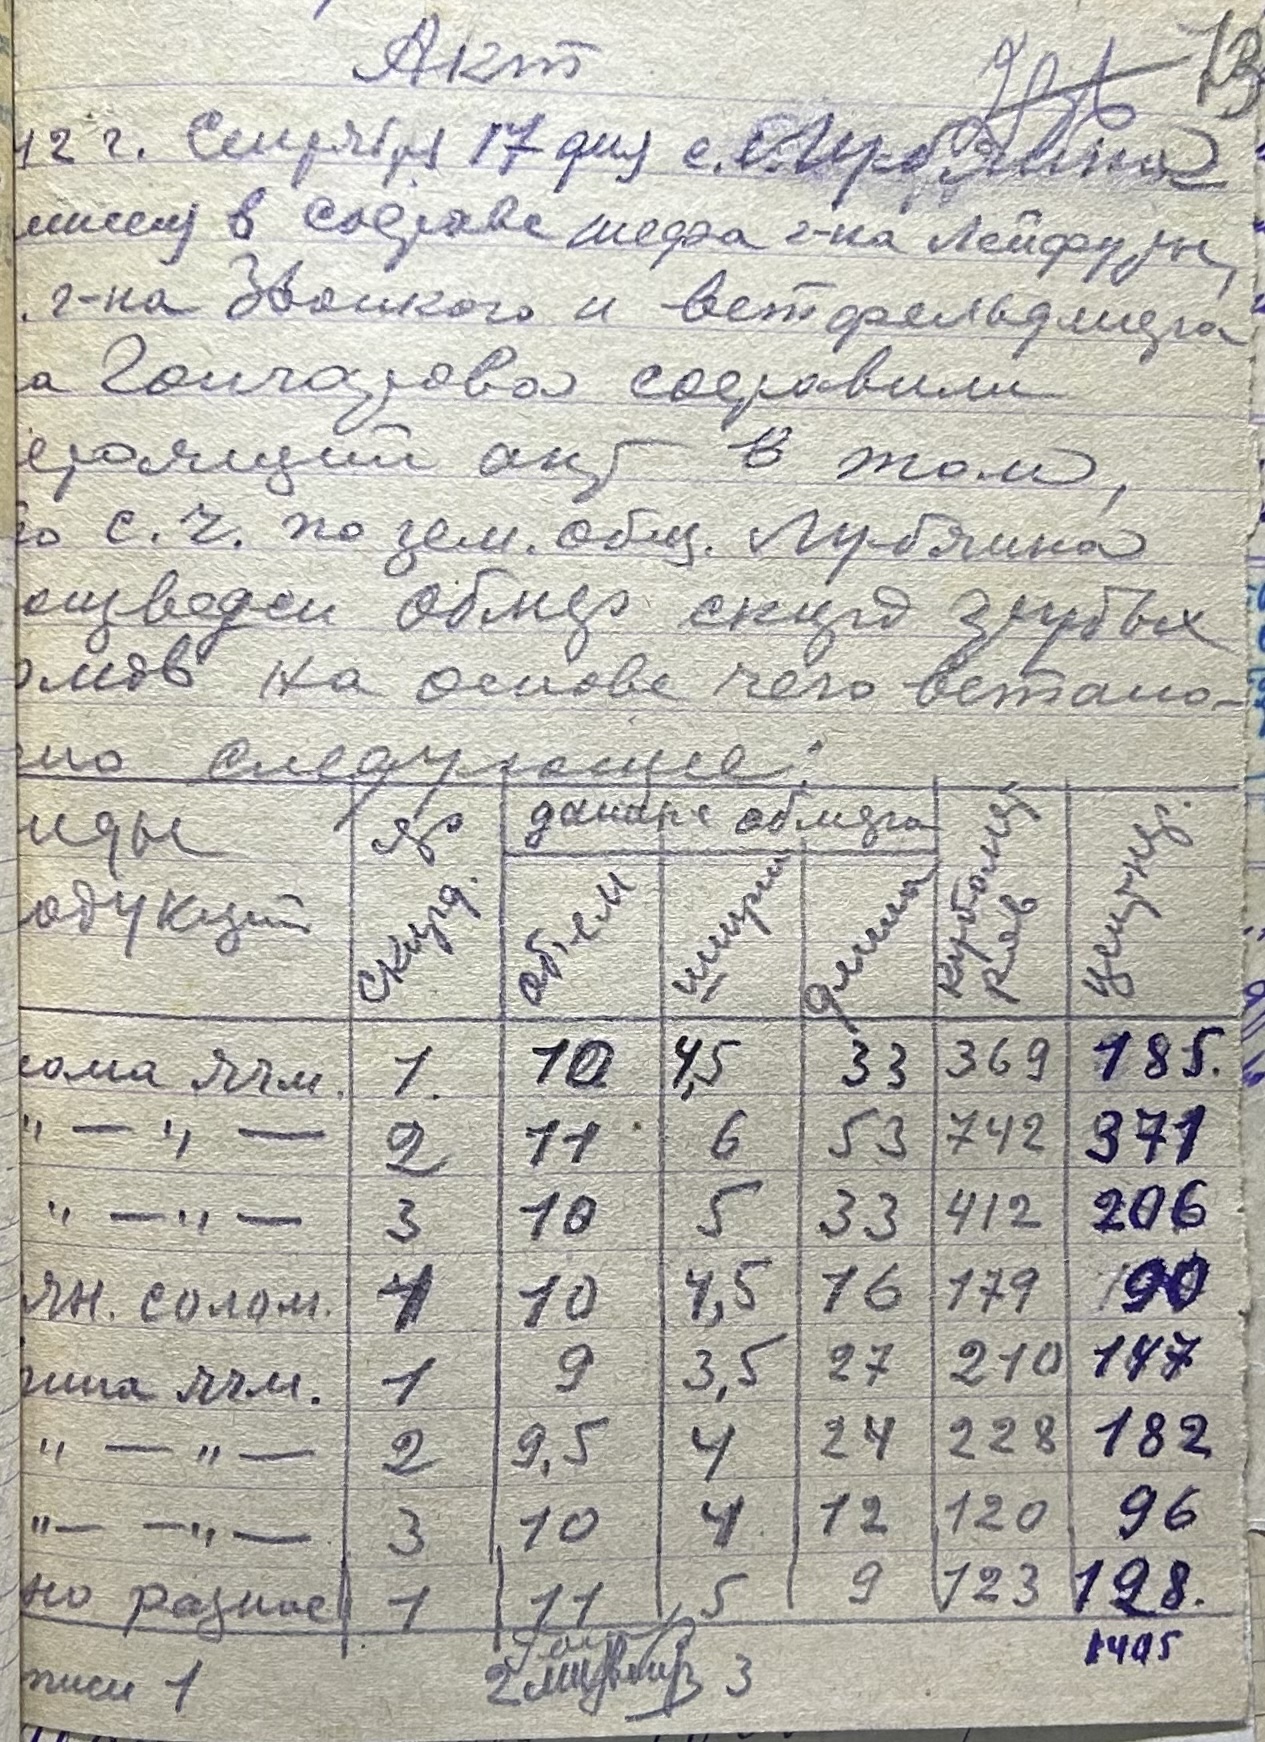 Акт
13
42 г. Сентября 17 дня с. Лубянка
миссия в составе шефа г-на Лейфуры,
г-на Звонкого и ветфельдшера
а Гончарова составили
стоящий акт в том,
то с.ч. по зем. общ. Лубянка
оизведен обмер скирд грубых
рмов на основе чего встано-
но следующее:
иды № данные обмера Кубомет Центнер.
одукции скирд. объем ширин длина ров
лома ячм. 1. 10 4,5 33 369 185.
" — " — 2 11 6 53 742 371
" — " — 3 10 5 33 412 206
ян. солом. 1 10 4,5 16 179 90
яина ячм. 1 9 3,5 27 210 147
" — " — 2 9,5 4 24 228 182
" — — " — 3 10 4 12 120 96
но разное 1 11 5 9 123 128.
1405
писи 1 2 3